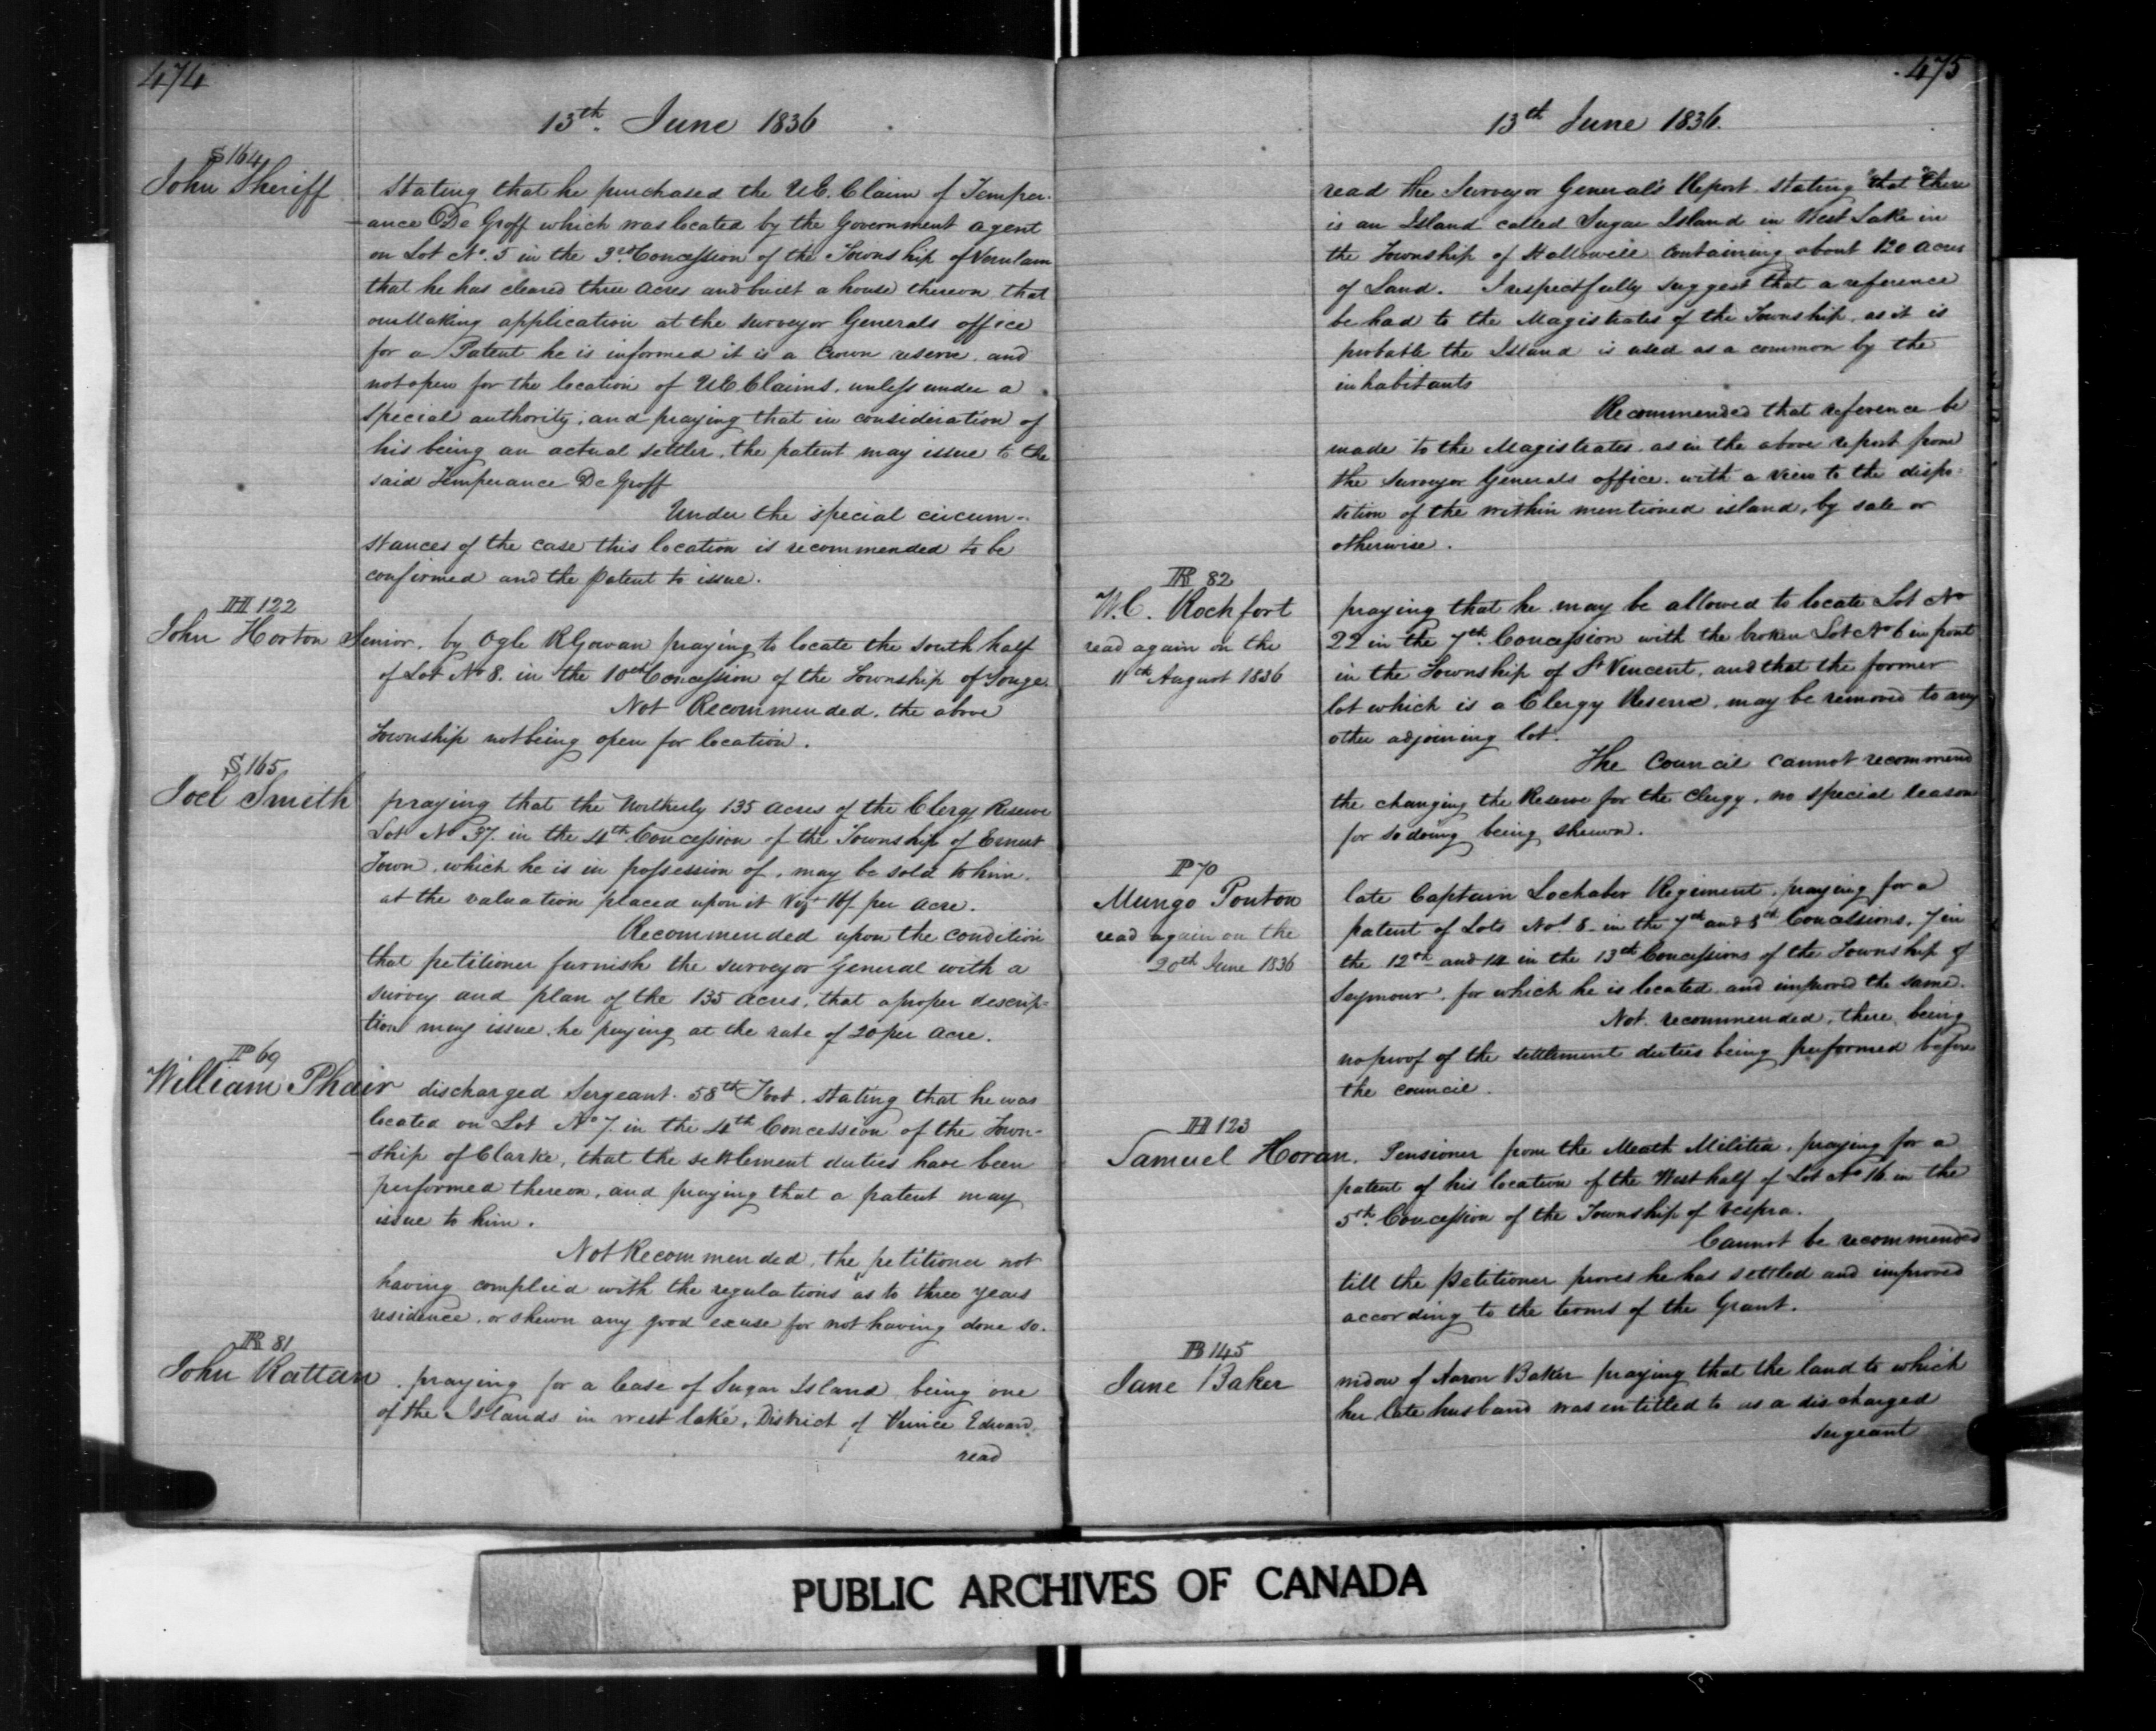 474
13th. June 1836
S 164
John Sheriff
stating that he purchased the U.E. Claim of Temper-
ance De Groff which was located by the Government agent
on Lot No. 5 in the 3rd Concession of the Township of Verulam
that he has cleared three acres and built a house thereon that
on making application at the surveyor Generals office
for a Patent he is informed it is a Crown reserve, and
not open for the location of UE Claims, unless under a
special authority; and praying that in consideration of
his being an actual settler, the patent may issue to the
said Temperance De Groff
Under the special circum-
stances of the case this location is recommended to be
confirmed and the patent to issue.
H 122
John Horton Senior, by Ogle R Gowan praying to locate the south half
of Lot No 8. in the 10th Concession of the Township of Yonge.
Not Recommended, the above
Township not being open for location.
S 165
Joel Smith
praying that the Northerly 135 acres of the Clergy Reserve
Lot No 37. in the 4th Concession of the Township of Ernest
Town, which he is in possession of, may be sold to him.
at the valuation placed upon it per acre.
Recommended upon the condition
that petitioner furnish the surveyor General with a
survey and plan of the 135 acres, that a proper descrip=
tion may issue, he paying at the rate of 20 per acre.
P 69
William Phair discharged Sergeant 58th Foot, stating that he was
located on Lot No 7 in the 4th Concession of the Town-
ship of Clarke, that the settlement duties have been
performed thereon, and praying that a patent may
issue to him.
Not Recommended, the petitioner not
having complied with the regulations as to three years
residence, or shewn any good excuse for not having done so.
R 81
John Rattan, praying for a lease of Sugar Island, being one
of the Islands in west lake, District of Prince Edward.
read
475
13th June 1836.
read the Surveyor General's Report stating "that there
is an Island called Sugar Island in West Lake in
the Township of Hallowell containing about 120 acres
of Land. I respectfully suggest that a reference
be had to the Magistrates of the Township, as it is
probable the Island is used as a common by the
inhabitants
Recommended that reference be
made to the Magistrates, as in the above report from
the Surveyor Generals office, with a view to the dispo=
sition of the within mentioned island, by sale or
otherwise.
R 82
W. C. Rockfort
read again on the
11th August 1836
praying that he may be allowed to locate Lot No
22 in the 7th. Concession with the broken Lot No 6 in front
in the Township of St Vincent, and that the former
lot which is a Clergy Reserve, may be removed to any
other adjoining lot.
The Council cannot recommend
the changing the Reserve for the Clergy, no special reason
for so doing being shewn.
P 70
Mungo Ponton
read again on the
20th June 1836
late Captain Lochaber Regiment, praying for a
patent of Lots Nos 8 in the 7th and 8th Concessions, 7 in
the 12th and 14 in the 13th Concessions of the Township of
Seymour, for which he is located and improved the same.
Not recommended, there being
no proof of the settlement duties being performed before
the council.
H 123
Samuel Horan. Pensioner from the Meath Militia, praying for a
patent of his location of the West half of Lot No 16 in the
5th. Concession of the Township of Vespra.
Cannot be recommended
till the petitioner proves he has settled and improved
according to the terms of the Grant.
B 145
Jane Baker
widow of Aaron Baker praying that the land to which
her late husband was entitled to as a discharged
sergeant
PUBLIC ARCHIVES OF CANADA